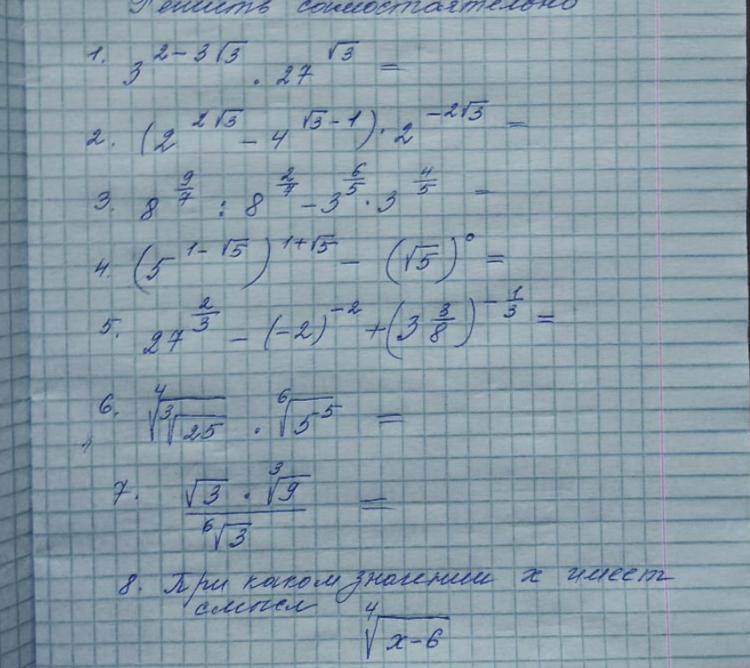 Решить самостоятельно
1. 3^{2-3√3} · 27^{√3} =
2. (2^{2√3} - 4^{√3-1}) · 2^{-2√3} =
3. 8^{9/7} : 8^{2/7} - 3^{6/5} · 3^{4/5} =
4. (5^{1-√5})^{1+√5} - (√5)^0 =
5. 27^{2/3} - (-2)^{-2} + (3 3/8)^{-1/3} =
6. ⁴√(³√25) · ⁶√(5^5) =
7. (√3 · ³√9) / ⁶√3 =
8. При каком значении x имеет
смысл
⁴√(x-6)